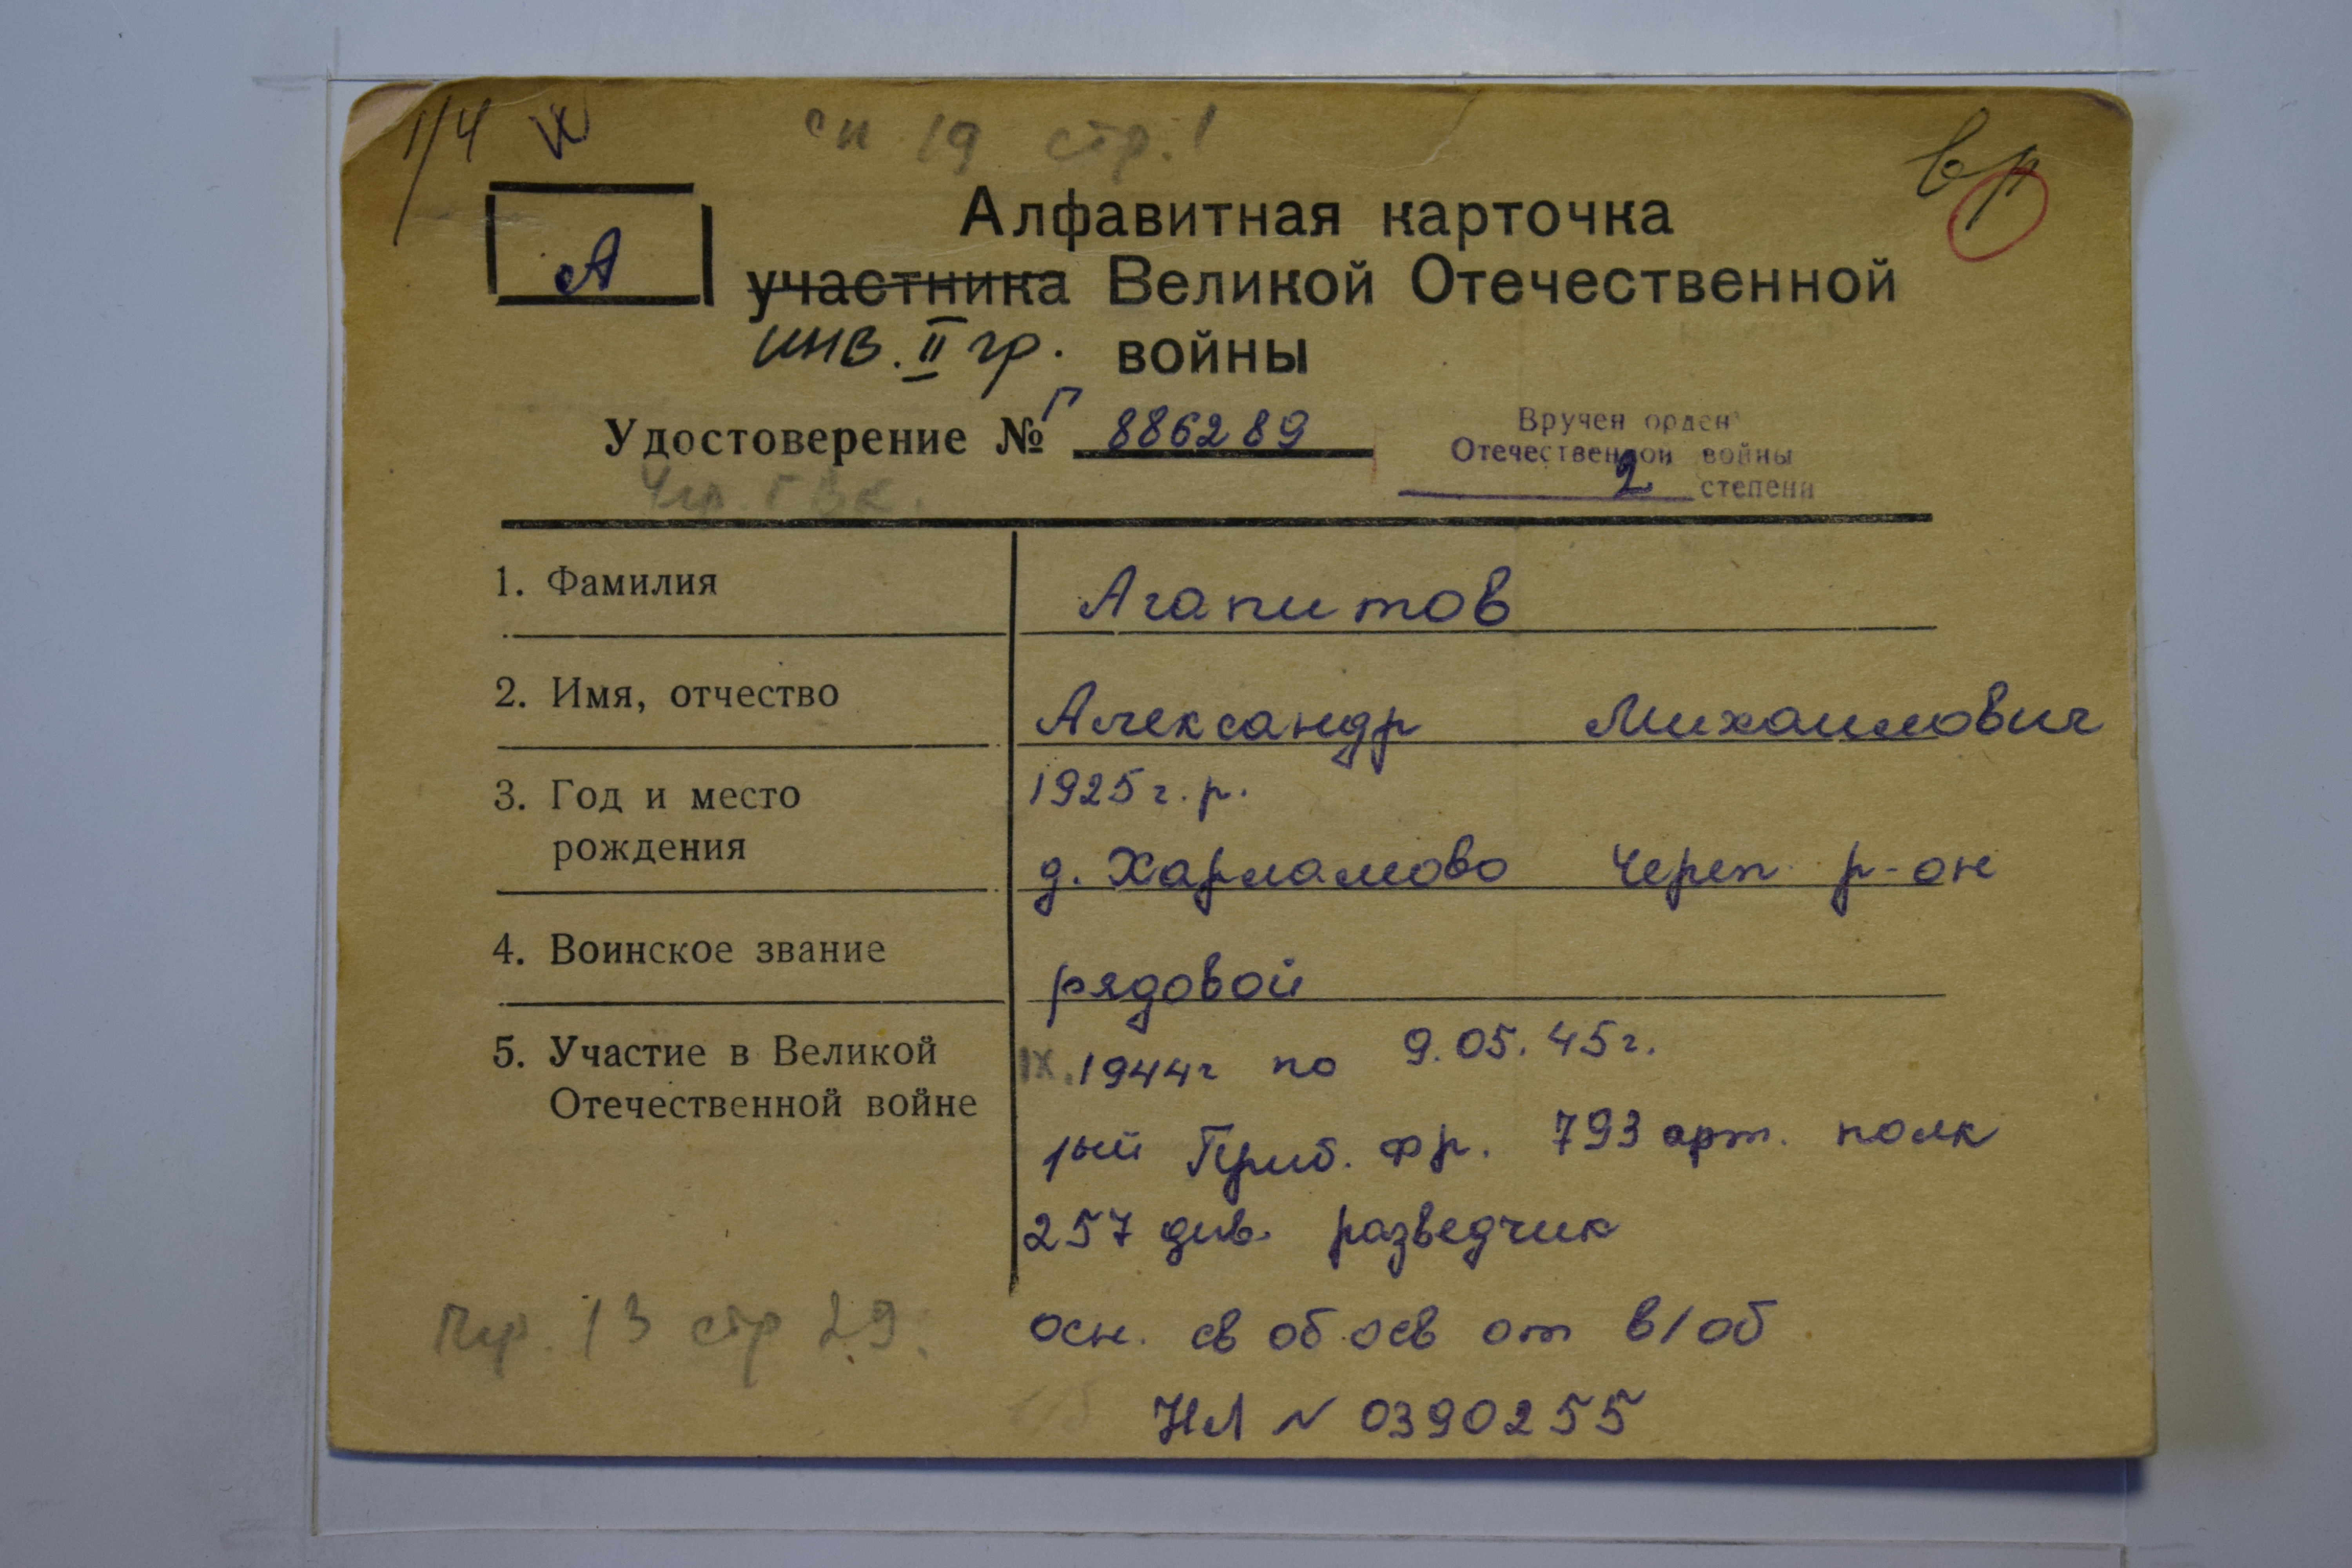 1/4
сп 19 стр. 1
вр
А
Алфавитная карточка
участника Великой Отечественной
инв. II гр. войны
Удостоверение № Г 886289
Вручен орден
Отечественной войны
2 степени
Чер. ГВК.
1. Фамилия Агапитов
2. Имя, отчество Александр Михаилович
3. Год и место 1925 г. р.
рождения д. Харламово Череп р-он
4. Воинское звание рядовой
5. Участие в Великой IX. 1944г по 9.05.45г.
Отечественной войне
1ый Приб. фр. 793 арт. полк
257 див. разведчик
Пр. 13 стр 29.
осн. св об осв от в/об
НЛ N 0390255